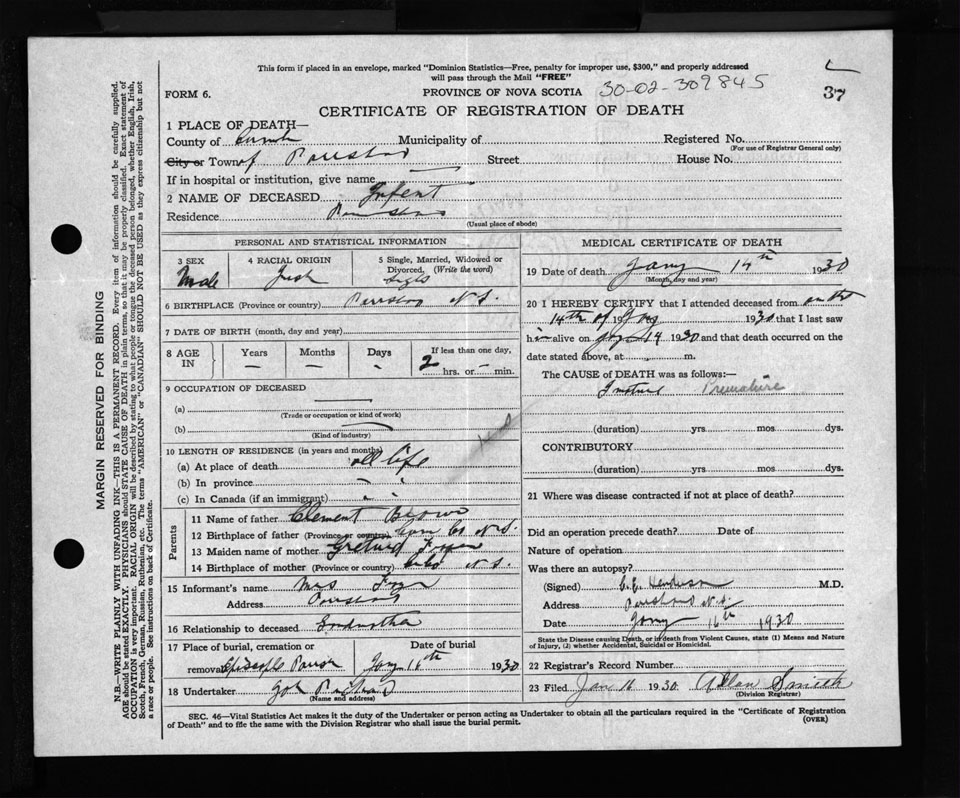 This form if placed in an envelope, marked "Dominion Statistics—Free, penalty for improper use, $300," and properly addressed
will pass through the Mail "FREE"
FORM 6.
PROVINCE OF NOVA SCOTIA
30-02-309845
37
CERTIFICATE OF REGISTRATION OF DEATH
1 PLACE OF DEATH—
County of Municipality of Registered No.
(For use of Registrar General only)
City or Town of Parrsboro Street House No.
If in hospital or institution, give name
2 NAME OF DECEASED Infent
Residence Parrsboro
(Usual place of abode)
PERSONAL AND STATISTICAL INFORMATION
3 SEX
Male
4 RACIAL ORIGIN
Irish
5 Single, Married, Widowed or
Divorced, (Write the word)
Single
6 BIRTHPLACE (Province or country) Parrsboro N.S.
7 DATE OF BIRTH (month, day and year)
8 AGE IN
Years —
Months —
Days
If less than one day,
2 hrs. or — min.
9 OCCUPATION OF DECEASED
(a)
(Trade or occupation or kind of work)
(b)
(Kind of industry)
10 LENGTH OF RESIDENCE (in years and months)
(a) At place of death all life
(b) In province
(c) In Canada (if an immigrant)
Parents
11 Name of father Clement Brown
12 Birthplace of father (Province or country) Co N.S.
13 Maiden name of mother
14 Birthplace of mother (Province or country) N.S.
15 Informant's name Mrs
Address Parrsboro
16 Relationship to deceased Grandmother
17 Place of burial, cremation or
removal Date of burial
Jany 16th 1930
18 Undertaker
(Name and address)
MEDICAL CERTIFICATE OF DEATH
19 Date of death Jany 14th 1930
(Month, day and year)
20 I HEREBY CERTIFY that I attended deceased from on the
14th of Jany 1930 that I last saw
him alive on Jany 14 1930 and that death occurred on the
date stated above, at m.
The CAUSE of DEATH was as follows:—
Premature
(duration) yrs mos dys.
CONTRIBUTORY
(duration) yrs. mos. dys.
21 Where was disease contracted if not at place of death?
Did an operation precede death? Date of
Nature of operation
Was there an autopsy?
(Signed) Henderson M.D.
Address Parrsboro N.S.
Date Jany 16th 1930
State the Disease causing Death, or in death from Violent Causes, state (1) Means and Nature
of Injury, (2) whether Accidental, Suicidal or Homicidal.
22 Registrar's Record Number
23 Filed Jan 16 1930 Allan Smith
(Division Registrar)
SEC. 46—Vital Statistics Act makes it the duty of the Undertaker or person acting as Undertaker to obtain all the particulars required in the "Certificate of Registration
of Death" and to file the same with the Division Registrar who shall issue the burial permit.
(OVER)
MARGIN RESERVED FOR BINDING
N.B.—WRITE PLAINLY WITH UNFADING INK—THIS IS A PERMANENT RECORD. Every item of information should be carefully supplied.
AGE should be stated EXACTLY. PHYSICIANS should STATE CAUSE OF DEATH in plain terms, so that it may be properly classified. Exact statement of
OCCUPATION is very important. RACIAL ORIGIN will be described by stating to what people or tongue the deceased person belonged, whether English, Irish,
Scotch, French, German, Russian, Ruthenian, etc. The terms "AMERICAN" or "CANADIAN" SHOULD NOT BE USED as they express citizenship but not
a race or people. See instructions on back of Certificate.